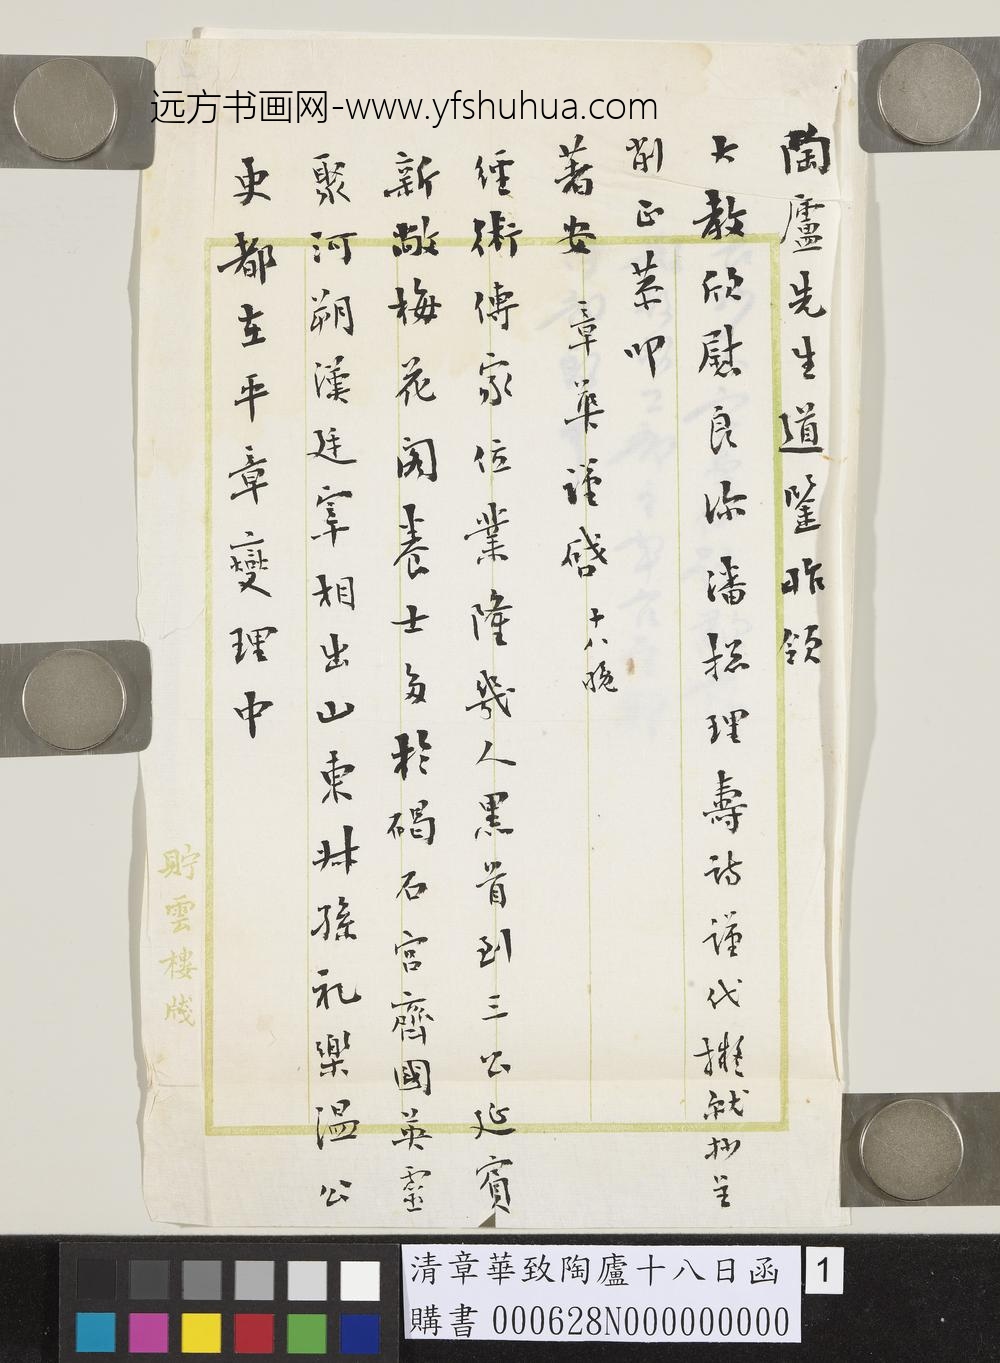 远方书画网-www.yfshuhua.com
陶廬先生道鑒昨領
大教欣慰良深潘總理壽詩謹代擬就抄呈
削正恭叩
著安 章華謹啓 十八晚
經術傳家位業隆幾人黑首到三公延賓
新敞梅花閣養士多於碣石宮齊國英靈
聚河朔漢廷宰相出山東叔孫礼樂温公
史都在平章燮理中
貯雲樓牋
清章華致陶廬十八日函
購書 000628N000000000
1